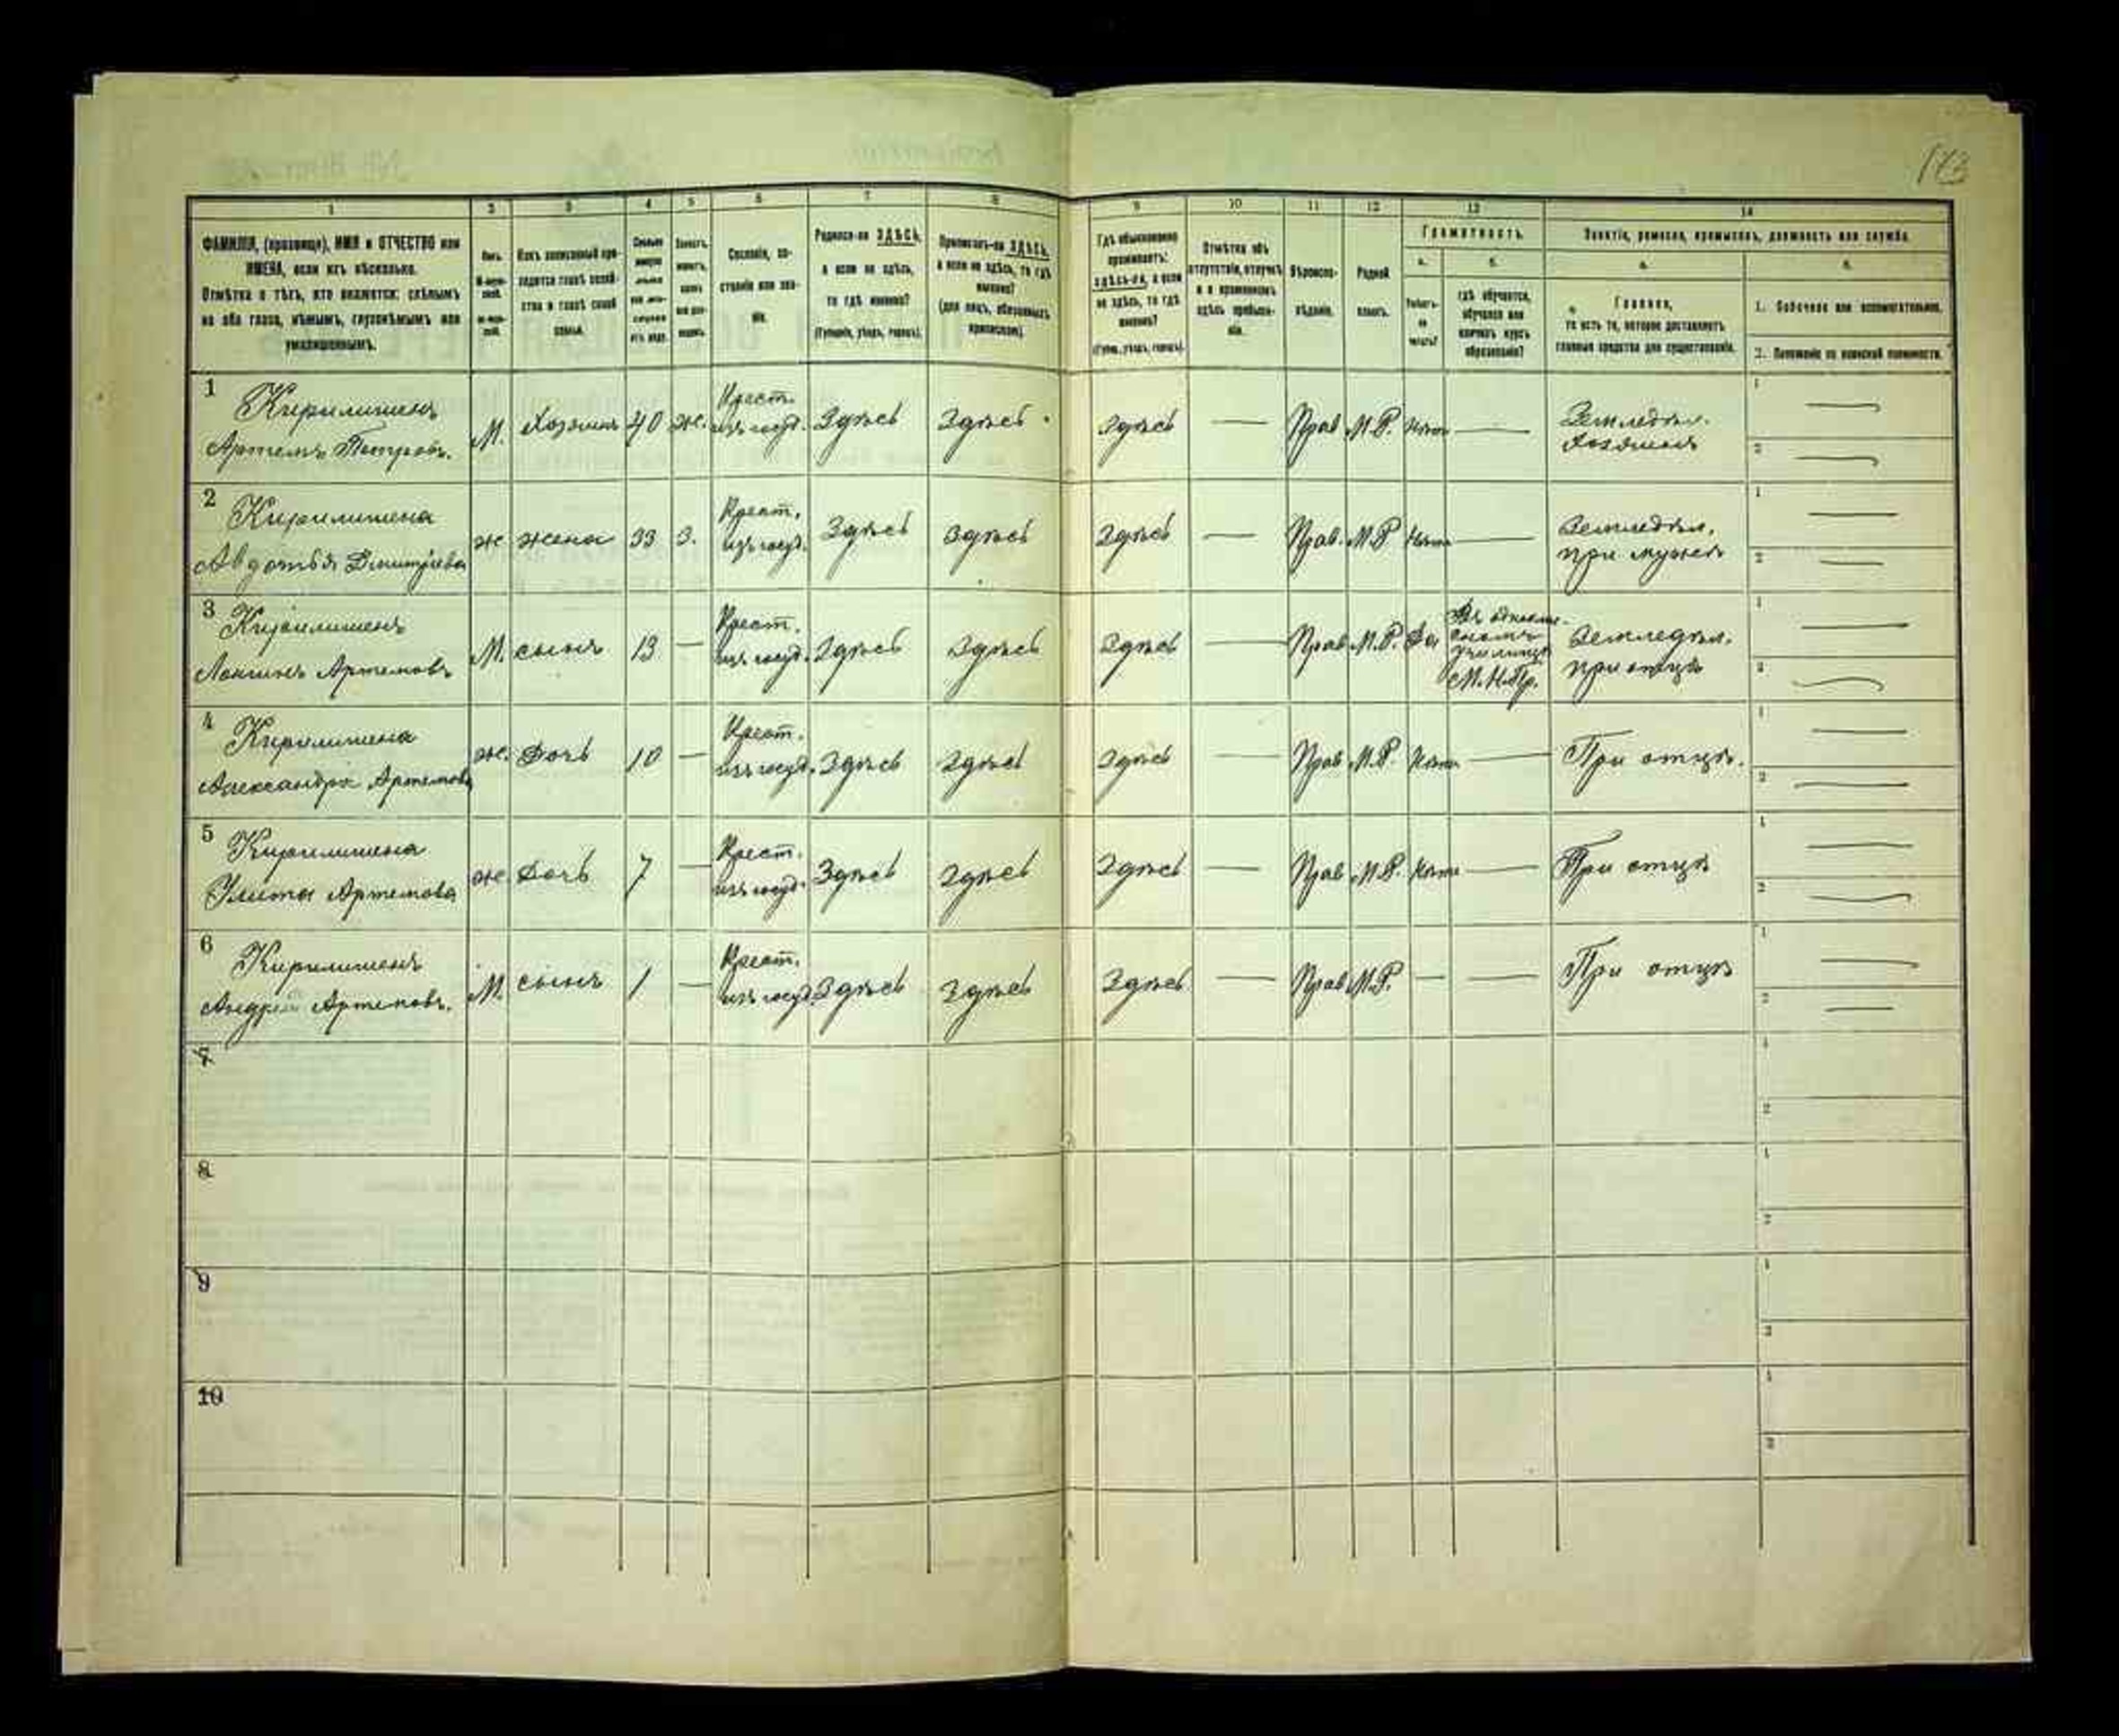 173
1 2 3 4 5 6 7 8 9 10 11 12 13 14
ФАМИЛІЯ, (прозвище), ИМЯ и ОТЧЕСТВО или
ИМЕНА, если ихъ нѣсколько.
Отмѣтка о тѣхъ, кто окажется: слѣпымъ
на оба глаза, нѣмымъ, глухонѣмымъ или
умалишеннымъ.
Полъ.
Какъ записанный при-
ходится главѣ хозяй-
ства и главѣ своей
семьи.
Сословіе, со-
стояніе или зва-
ніе.
Родился-ли ЗДѢСЬ,
а если не здѣсь,
то гдѣ именно?
(Губернія, уѣздъ, городъ).
Приписанъ-ли ЗДѢСЬ,
а если не здѣсь, то гдѣ
именно?
(для лицъ, обязанныхъ
припискою).
Гдѣ обыкновенно
проживаетъ:
здѣсь-ли, а если
не здѣсь, то гдѣ
именно?
(Губер., уѣздъ, городъ).
Отмѣтка объ
отсутствіи, отлучкѣ
и о временномъ
здѣсь пребыва-
ніи.
Вѣроиспо-
вѣданіе.
Родной
языкъ.
Грамотность.
а.
Умѣетъ-
ли
читать?
б.
гдѣ обучается,
обучался или
кончилъ курсъ
образованія?
Занятіе, ремесло, промыселъ, должность или служба.
а.
Главное,
то есть то, которое доставляетъ
главныя средства для существованія.
б.
1. Побочное или вспомогательное.
2. Положеніе по воинской повинности.
1 Кирилишенъ
Артемъ Петровъ.
М. Хозяинъ 40 ж. Крест. изъ госуд. Здѣсь Здѣсь Здѣсь — Прав М.Р. Нѣтъ — Земледѣл. хозяинъ 1 — 2 —
2 Кирилишена
Авдотья Дмитріева
ж жена 33 З. Крест. изъ госуд. Здѣсь Здѣсь Здѣсь — Прав. М.Р Нѣтъ — Земледѣл. при мужѣ 1 — 2 —
3 Кирилишенъ
Лонгинъ Артемовъ
М. сынъ 13 — Крест. изъ госуд. Здѣсь Здѣсь Здѣсь — Прав М.Р. Да Въ училищѣ М.Н.Пр. Земледѣл. при отцѣ 1 — 2 —
4 Кирилишена
Александра Артемова
ж. Дочь 10 — Крест. изъ госуд. Здѣсь Здѣсь Здѣсь — Прав М.Р. Нѣтъ — При отцѣ. 1 — 2 —
5 Кирилишена
Улита Артемова
ж. Дочь 7 — Крест. изъ госуд. Здѣсь Здѣсь Здѣсь — Прав М.Р. Нѣтъ — При отцѣ 1 — 2 —
6 Кирилишенъ
Андрей Артемовъ.
М. сынъ 1 — Крест. изъ госуд. Здѣсь Здѣсь Здѣсь — Прав М.Р. — — При отцѣ 1 — 2 —
7 1
2
8 1
2
9 1
2
10 1
2